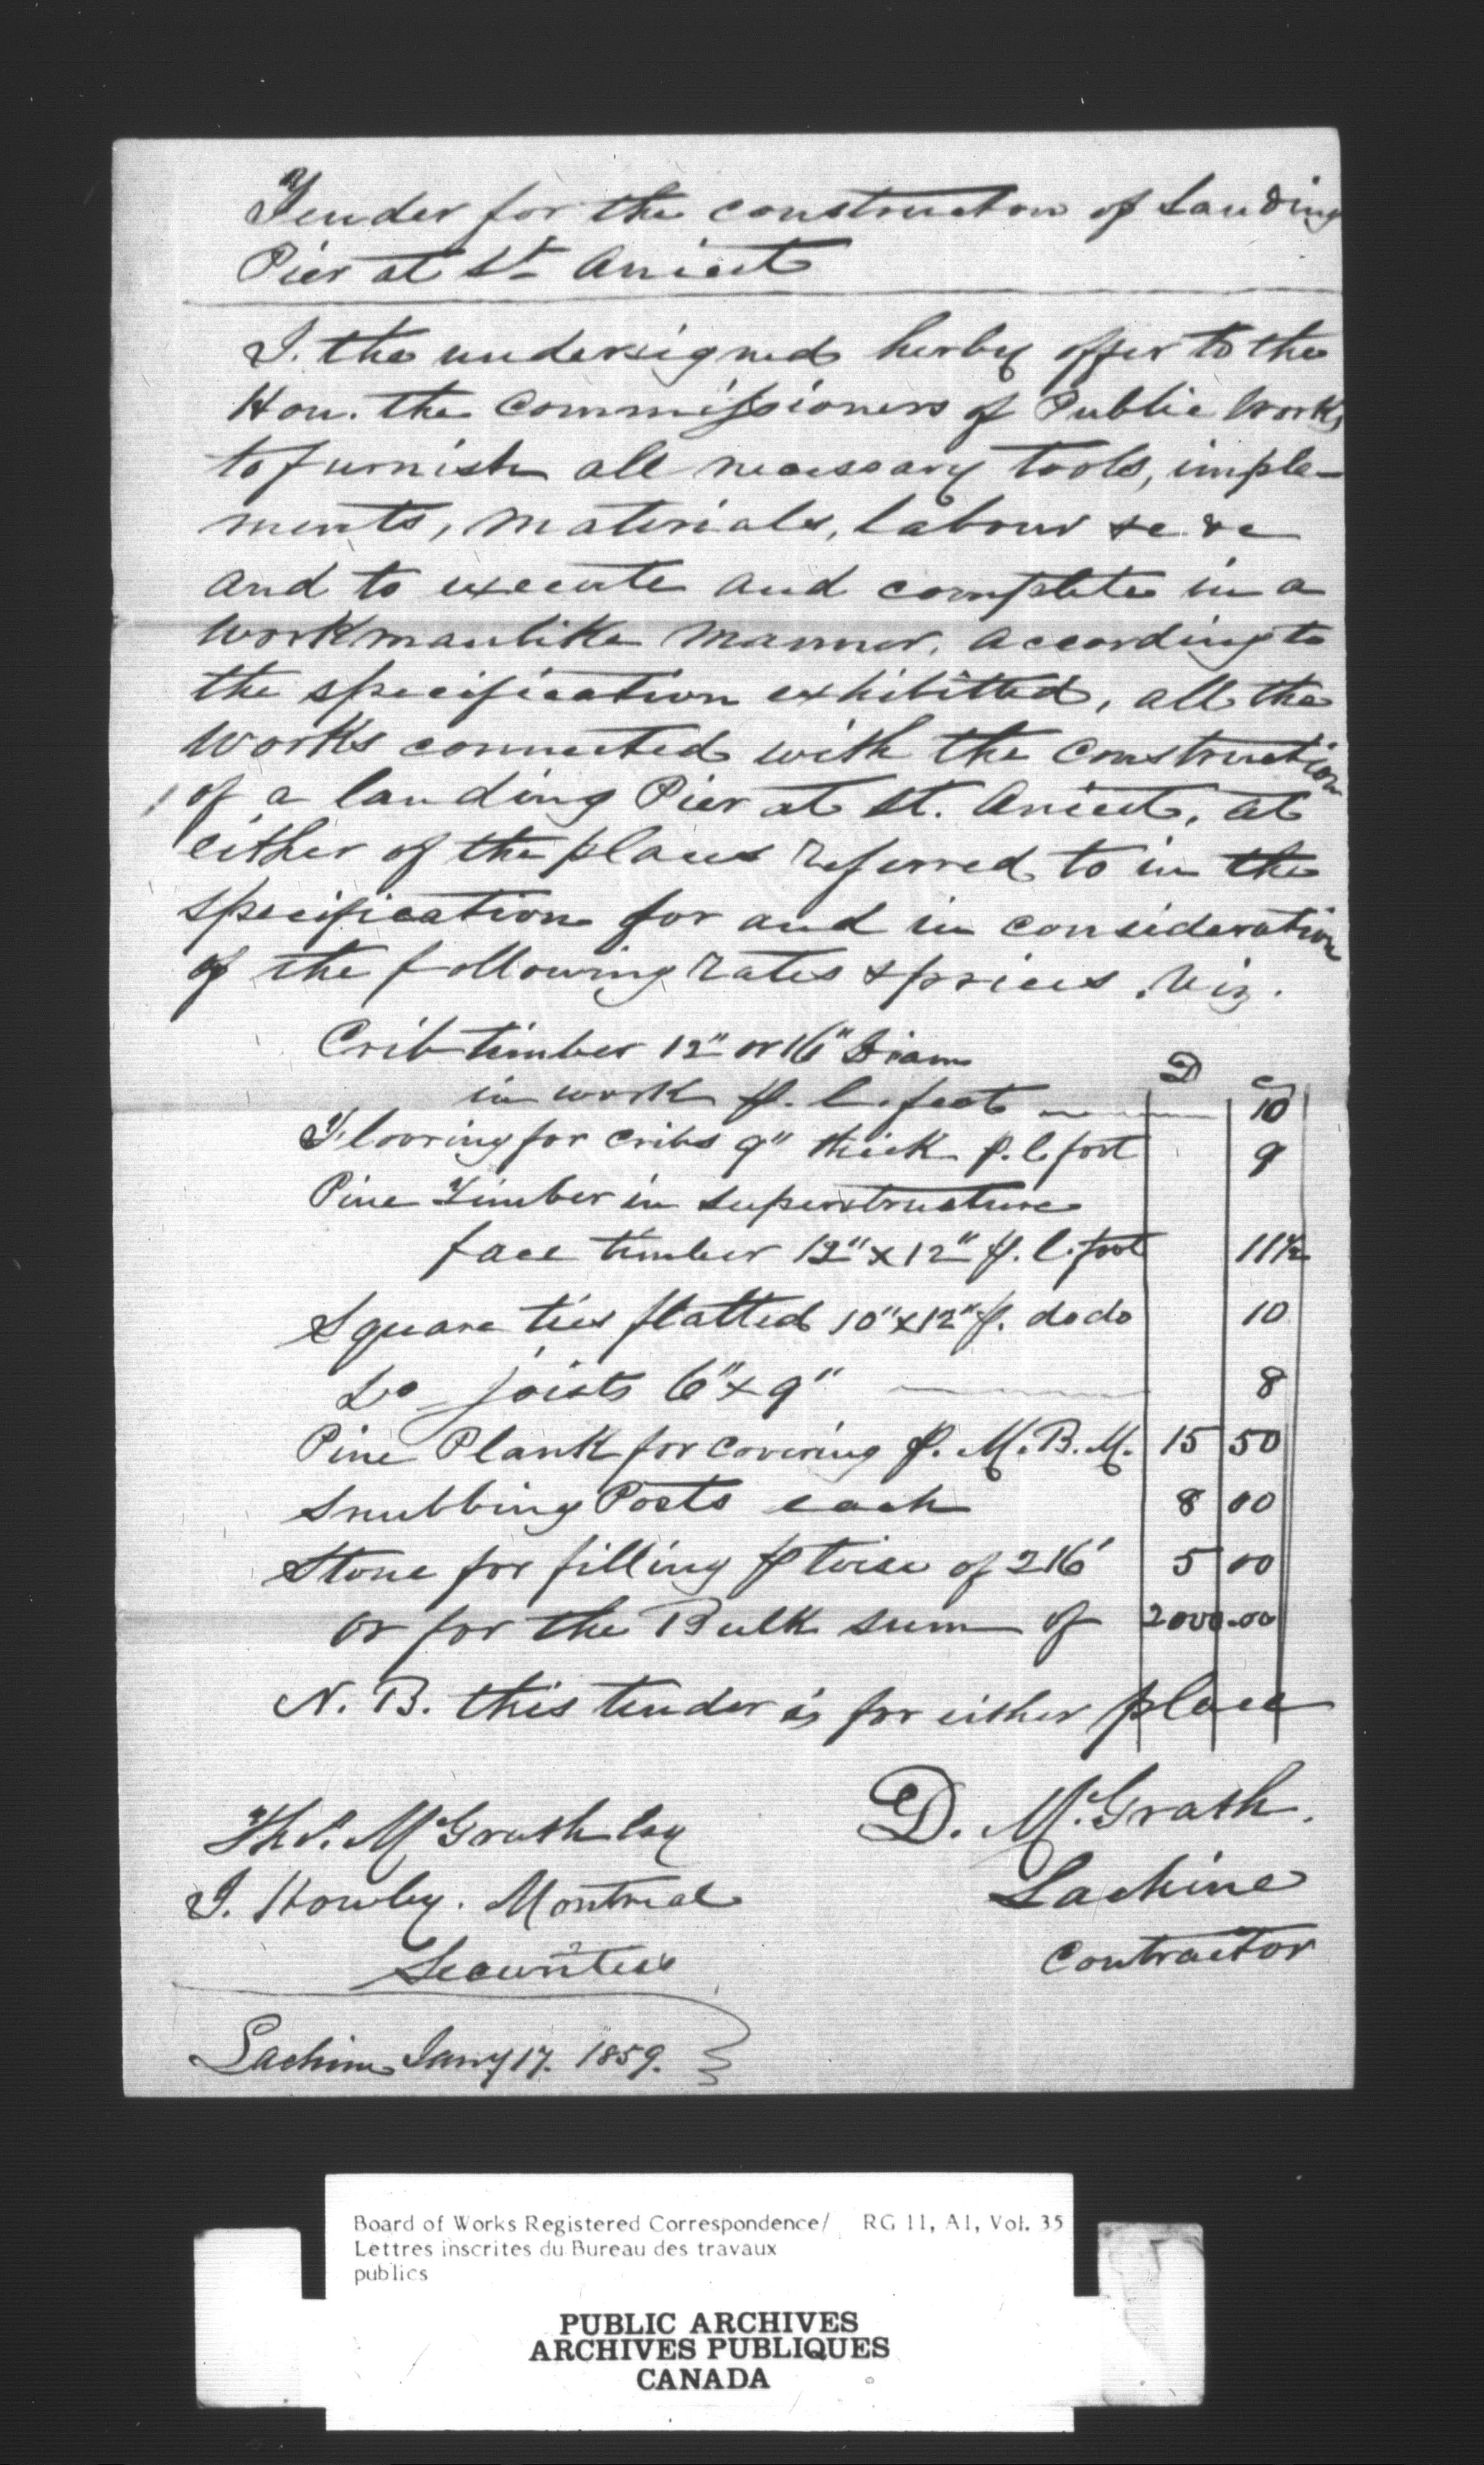 Tender for the construction of Landing
Pier at St Anicet
I. the undersigned herby offer to the
Hon. the Commissioners of Public Works
to furnish all necessary tools, imple-
ments, materials, labour &c &c
and to execute and complete in a
workmanlike manner, according to
the specification exhibitted, all the
works connected with the construction
of a landing Pier at St. Anicet, at
either of the places referred to in the
specification for and in consideration
of the following rates & prices. Viz.
Crib timber 12" or 16" Diam D c
in work p. l. feet 10
Flooring for cribs 9" thick p. l. foot 9
Pine Timber in superstructure
face timber 12" x 12" p. l. foot 11½
Square ties flatted 10" x 12" p. do do 10
Do joists 6" x 9" 8
Pine Plank for covering p. M. B. M. 15 50
Snubbing Posts each 8 00
Stone for filling p toise of 216' 5 00
or for the Bulk sum of 2000.00
N. B. this tender is for either place
Ths. McGrath Esq
J. Howley. Montreal
Securities
D. McGrath.
Lachine
Contractor
Lachine Jany 17. 1859.
Board of Works Registered Correspondence/ RG 11, A1, Vol. 35
Lettres inscrites du Bureau des travaux
publics
PUBLIC ARCHIVES
ARCHIVES PUBLIQUES
CANADA